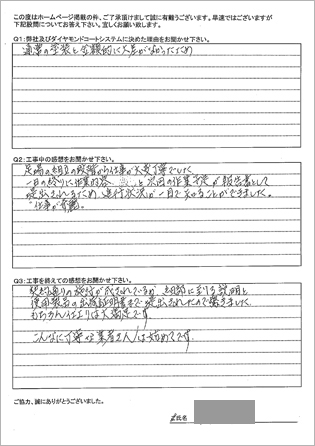 この度はホームページ掲載の件、ご了承頂けまして誠に有難うございます。早速ではございますが
下記設問についてお答え下さい。宜しくお願い致します。
Q1:弊社及びダイヤモンドコートシステムに決めた理由をお聞かせ下さい。
通常の塗装と金額的に大差がなかったため
Q2:工事中の感想をお聞かせ下さい。
足場の組立の段階から仕事が大変丁寧でした。
一日の終りに作業内容 と次回の作業予定が報告書として
提出されるため、進行状況が一目で わかることができました。
仕事が綺麗。
Q3:工事を終えての感想をお聞かせ下さい。
契約通りの施行が成されているか、細部に到る説明と
使用製品の出荷証明書まで提出されたので驚きました。
もちろん仕上りは大満足です。
こんなに丁寧な業者さんは始めてです。
ご協力、誠にありがとうございました。
氏名